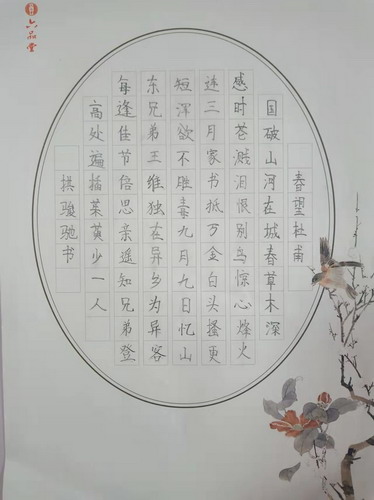 六品堂
春望杜甫
国破山河在城春草木深
感时花溅泪恨别鸟惊心烽火
连三月家书抵万金白头搔更
短浑欲不胜簪九月九日忆山
东兄弟王维独在异乡为异客
每逢佳节倍思亲遥知兄弟登
高处遍插茱萸少一人
骏驰书